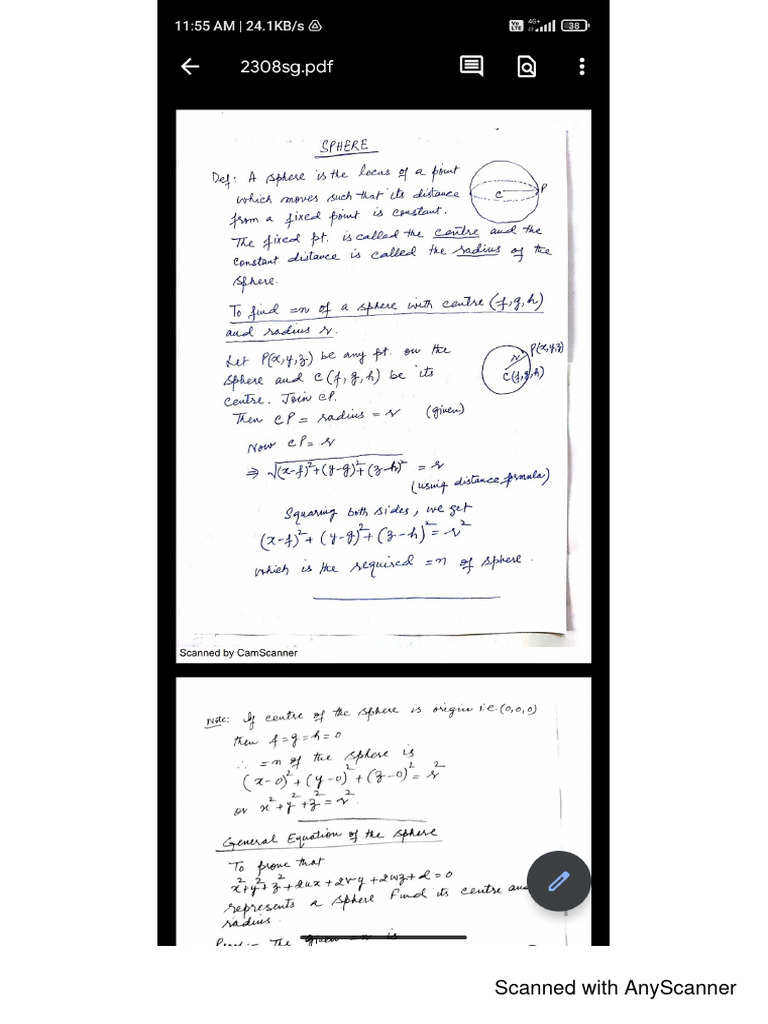 11:55 AM | 24.1KB/s
Vo LTE 4G+ 38
2308sg.pdf
SPHERE
Def: A sphere is the locus of a point
which moves such that its distance
from a fixed point is constant.
C P
The fixed pt. is called the centre and the
constant distance is called the radius of the
sphere.
To find =n of a sphere with centre (f,g,h)
and radius r.
Let P(x,y,z) be any pt. on the
sphere and C(f,g,h) be its
centre. Join CP.
r P(x,y,z)
C(f,g,h)
Then CP = radius = r (given)
Now CP = r
⇒ √(x-f)²+(y-g)²+(z-h)² = r
(using distance formula)
Squaring both sides, we get
(x-f)²+(y-g)²+(z-h)²=r²
which is the required =n of sphere.
Scanned by CamScanner
Note: If centre of the sphere is origin i.e.(0,0,0)
then f=g=h=0
∴ =n of the sphere is
(x-0)²+(y-0)²+(z-0)²=r²
or x²+y²+z²=r².
General Equation of the sphere
To prove that
x²+y²+z²+2ux+2vy+2wz+d=0
represents a sphere Find its centre and
radius.
The given =n is
Scanned with AnyScanner